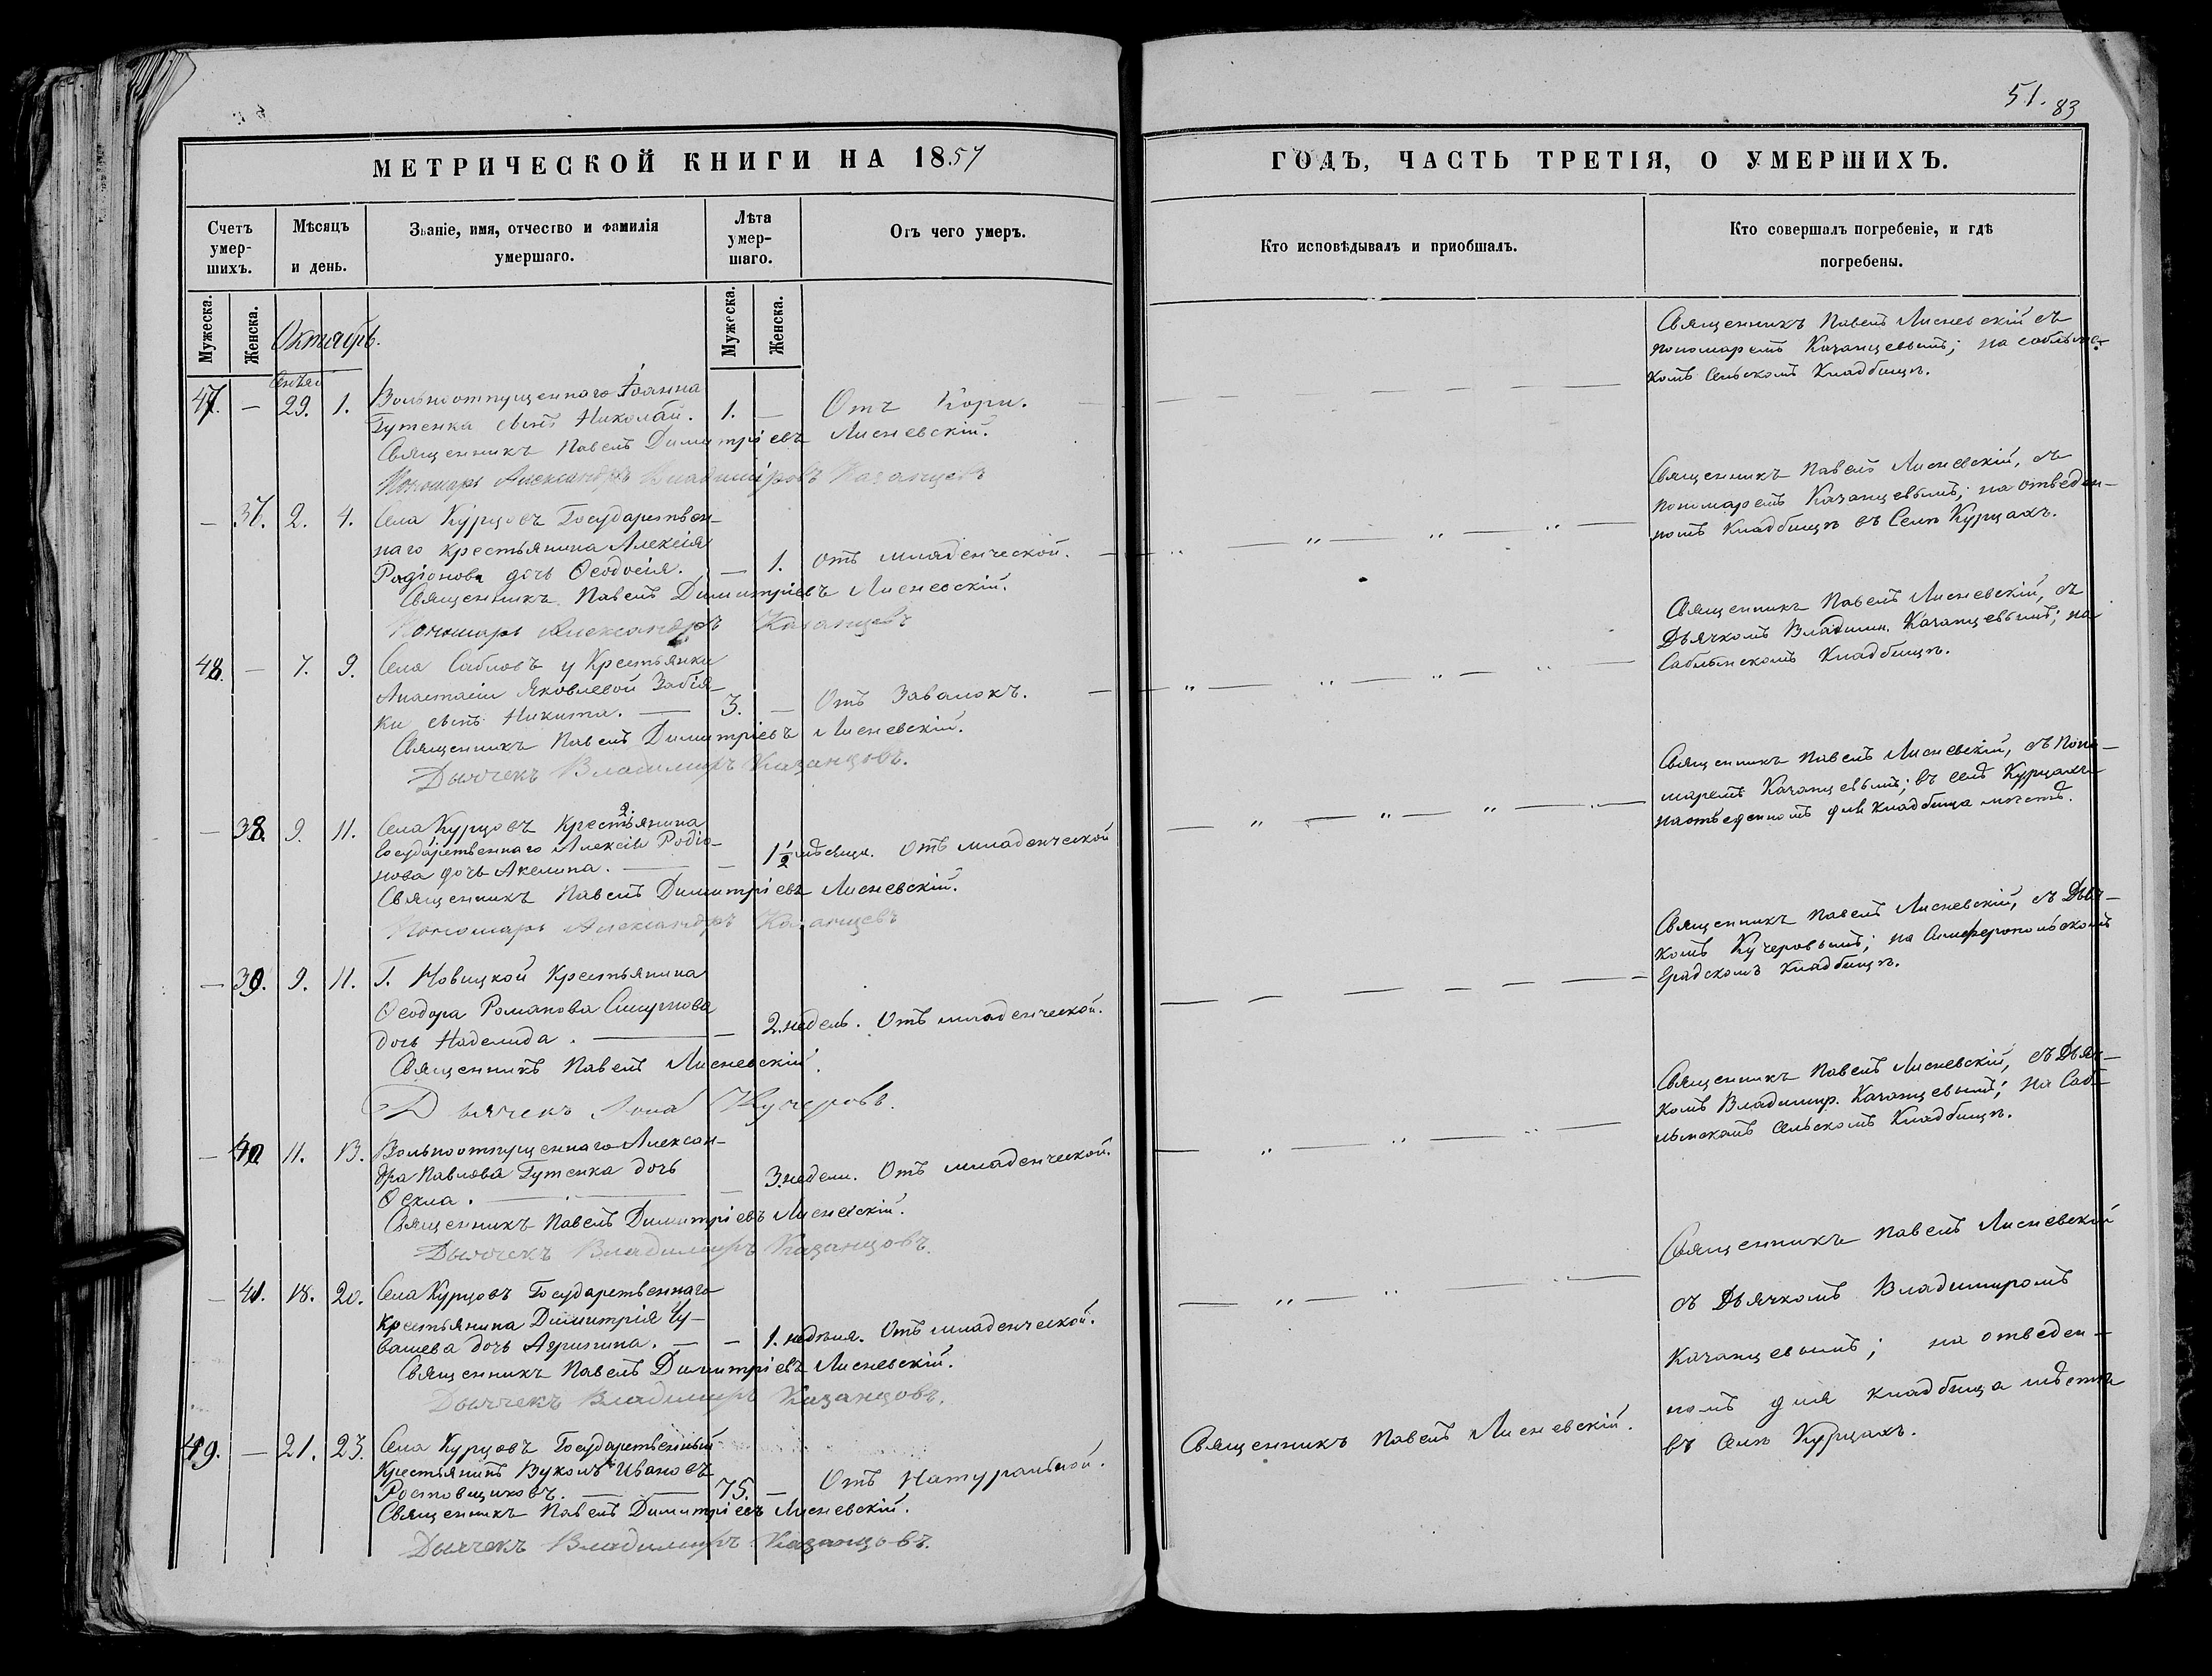 51. 83
МЕТРИЧЕСКОЙ КНИГИ НА 1857
ГОДЪ, ЧАСТЬ ТРЕТІЯ, О УМЕРШИХЪ.
Счетъ умер-шихъ.
Мѣсяцъ и день.
Званіе, имя, отчество и фамилія умершаго.
Лѣта умер-шаго.
Отъ чего умеръ.
Кто исповѣдывалъ и пріобщалъ.
Кто совершалъ погребеніе, и гдѣ погребены.
Мужеска.
Женска.
Мужеска.
Женска.
Октябрь.
47. — 29. 1. Вольноотпущеннаго Іоанна
Гутенка сынъ Николай. 1. — Отъ Кори.
Священникъ Павелъ Димитріевъ Лисневскій.
Пономарь Александръ Владиміровъ Казанцевъ
Священникъ Павелъ Лисневскій съ
пономаремъ Казанцевымъ; на саблынс-
комъ Сельскомъ Кладбищѣ.
— 37. 2. 4. Села Курцовъ Государствен-
наго крестьянина Алексія
Родіонова дочь Ѳеодосія. — 1. отъ младенческой.
Священникъ Павелъ Димитріевъ Лисневскій.
Пономарь Александръ Казанцевъ
Священникъ Павелъ Лисневскій, съ
пономаремъ Казанцевымъ; на отведен-
номъ Кладбищѣ въ Селѣ Курцахъ.
48. — 7. 9. Села Сабловъ у Крестьянки
Анастасіи Яковлевой Забія-
ки сынъ Никита. — 3. — Отъ Завалокъ.
Священникъ Павелъ Димитріевъ Лисневскій.
Дьячекъ Владимиръ Казанцовъ.
Священникъ Павелъ Лисневскій, съ
Дьячкомъ Владимир. Казанцевымъ; на
Саблынскомъ Кладбищѣ.
— 38. 9. 11. Села Курцовъ Крестьянина
Государственнаго Алексія Родіо-
нова дочь Акелина. — — 1 1/2 мѣсяца. Отъ младенческой
Священникъ Павелъ Димитріевъ Лисневскій.
Пономарь Александръ Казанцевъ
Священникъ Павелъ Лисневскій, съ Поно-
маремъ Казанцевымъ; въ селѣ Курцахъ
на отведенномъ для кладбища мѣстѣ.
— 39. 9. 11. Г. Новицкой Крестьянина
Ѳеодора Романова Смирнова
дочь Надежда. — — 2. недель. Отъ младенческой.
Священникъ Павелъ Лисневскій.
Дьячекъ Кучеровъ.
Священникъ Павелъ Лисневскій, съ Дьяч-
комъ Кучеровымъ; на Симферопольскомъ
Градскомъ Кладбищѣ.
— 40. 11. 13. Вольноотпущеннаго Алексан-
дра Павлова Гутенка дочь
Ѳекла. — — 3. недели. Отъ младенческой.
Священникъ Павелъ Димитріевъ Лисневскій.
Дьячекъ Владимиръ Казанцовъ.
Священникъ Павелъ Лисневскій, съ Дьяч-
комъ Владимир. Казанцевымъ; на Саб-
лынскомъ Сельскомъ Кладбищѣ.
— 41. 18. 20. Села Курцовъ Государственнаго
крестьянина Димитрія Чу-
вашева дочь Агрипина. — — 1. недѣля. Отъ младенческой.
Священникъ Павелъ Димитріевъ Лисневскій.
Дьячекъ Владимиръ Казанцовъ.
Священникъ Павелъ Лисневскій
съ Дьячкомъ Владимиромъ
Казанцевымъ; на отведен-
номъ для кладбища мѣстѣ
въ Селѣ Курцахъ.
49. — 21. 23. Села Курцовъ Государственный
Крестьянинъ Вуколъ Ивановъ
Ростовщиковъ. — 75. — Отъ Натуральной.
Священникъ Павелъ Димитріевъ Лисневскій.
Дьячекъ Владимиръ Казанцовъ.
Священникъ Павелъ Лисневскій.